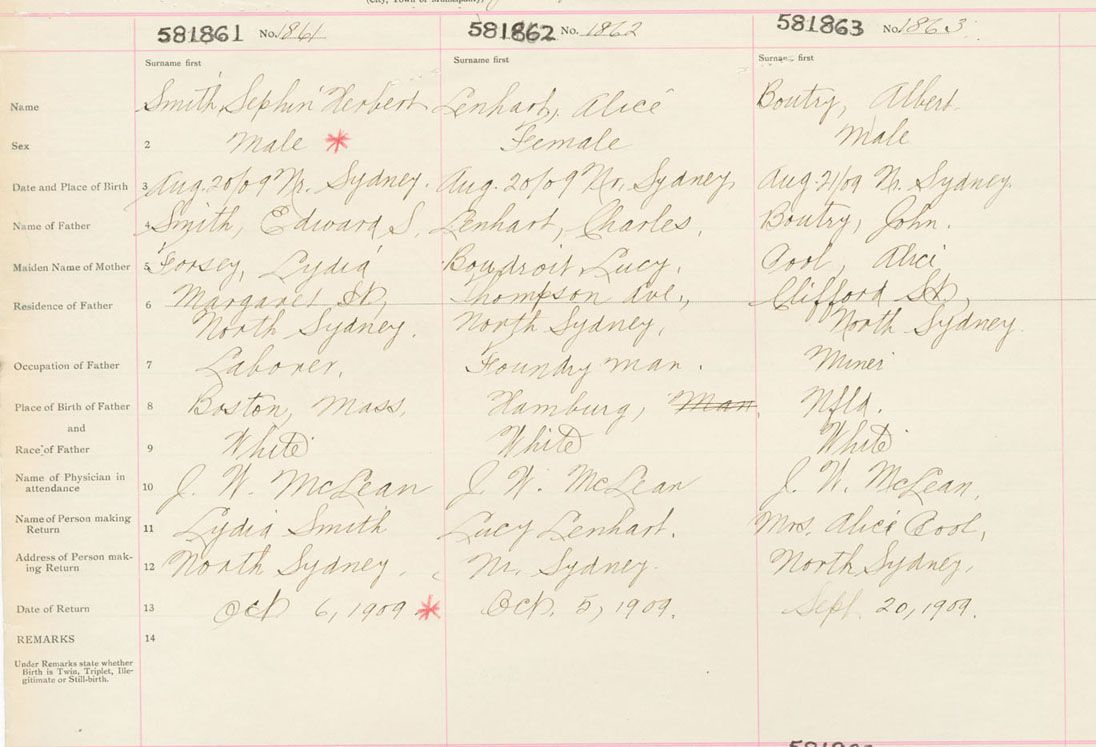 (City, Town or Municipality)
581861 No. 1861 581862 No. 1862 581863 No. 1863
Surname first Surname first Surname first
Name Smith, Sephin Herbert Lenhart, Alice Boutry, Albert.
Sex 2 Male * Female Male
Date and Place of Birth 3 Aug. 20/09 Nr. Sydney. Aug. 20/09 Nr. Sydney, Aug. 21/09 Nr. Sydney.
Name of Father 4 Smith, Edward S. Lenhart, Charles, Boutry, John.
Maiden Name of Mother 5 Forsey, Lydia Boudroit, Lucy. Cool, Alice
Residence of Father 6 Margaret St, Thompson Ave., Clifford St,
North Sydney. North Sydney, North Sydney.
Occupation of Father 7 Laborer, Foundry man. Miner
Place of Birth of Father 8 Boston, Mass, Hamburg, Man, Nfld.
and
Race of Father 9 White White White
Name of Physician in attendance 10 J. W. McLean J. W. McLean J. W. McLean,
Name of Person making Return 11 Lydia Smith Lucy Lenhart. Mrs. Alice Cool,
Address of Person making Return 12 North Sydney, Nr. Sydney. North Sydney,
Date of Return 13 Oct 6, 1909 * Oct. 5, 1909. Sept. 20, 1909.
REMARKS 14
Under Remarks state whether
Birth is Twin, Triplet, Ille-
gitimate or Still-birth.